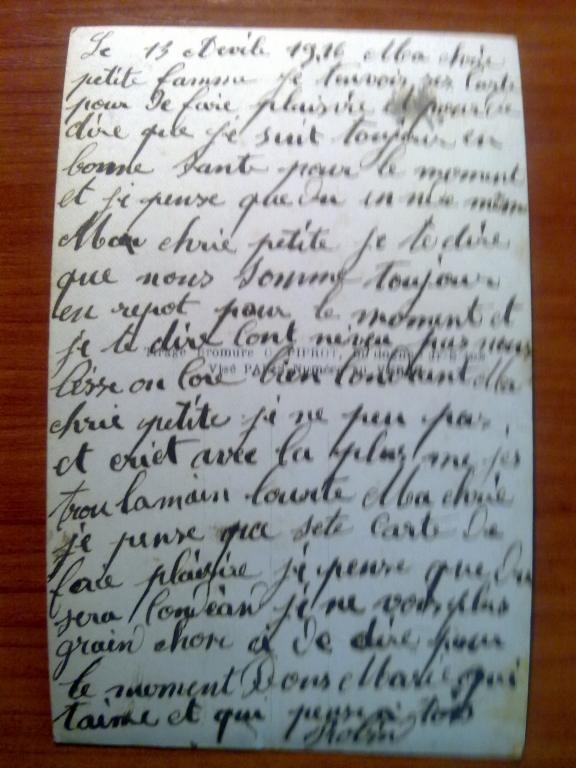 Le 13 Avrile 1916 Ma chrie
petite famme je tanvois ses carte
pour De faire plaisire et pour te
dire que je suit toujour en
bonne sante pour le moment
et je pense que du en né de même
Ma chrie petite je te dire
que nous somme toujour
en repot pour le moment et
je te dire cont
bien contant Ma
chrie petite je ne peu pas
et criét avec la plus me jés
trou lamain lourte Ma chrie
je pense que sete carte De
faire plaisire je pense que Du
sera je ne vois plus
grain chose à De dire pour
le moment Dons Marie qui
taime et qui pense à tois